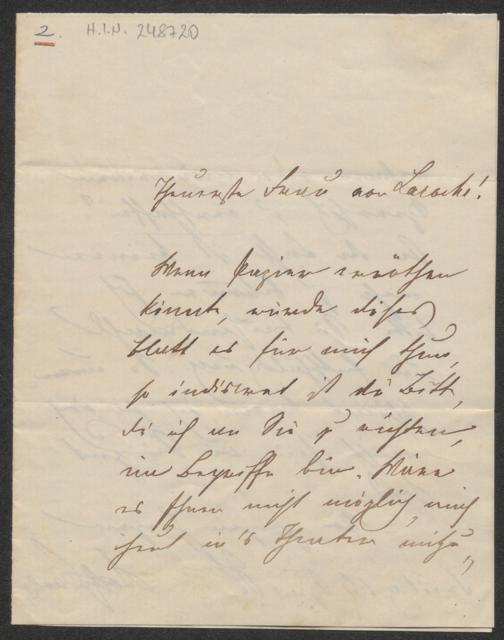 2. H.I.N. 248720
Theuerste Frau von Laroche!
Wenn Papier erröthen
könnte, würde dieses
Blatt es für mich thun,
so indiscret ist die Bitte,
die ich an Sie zu richten,
im Begriffe bin. Wäre
es Ihnen nicht möglich, mich
heut in's Theater mitzu„